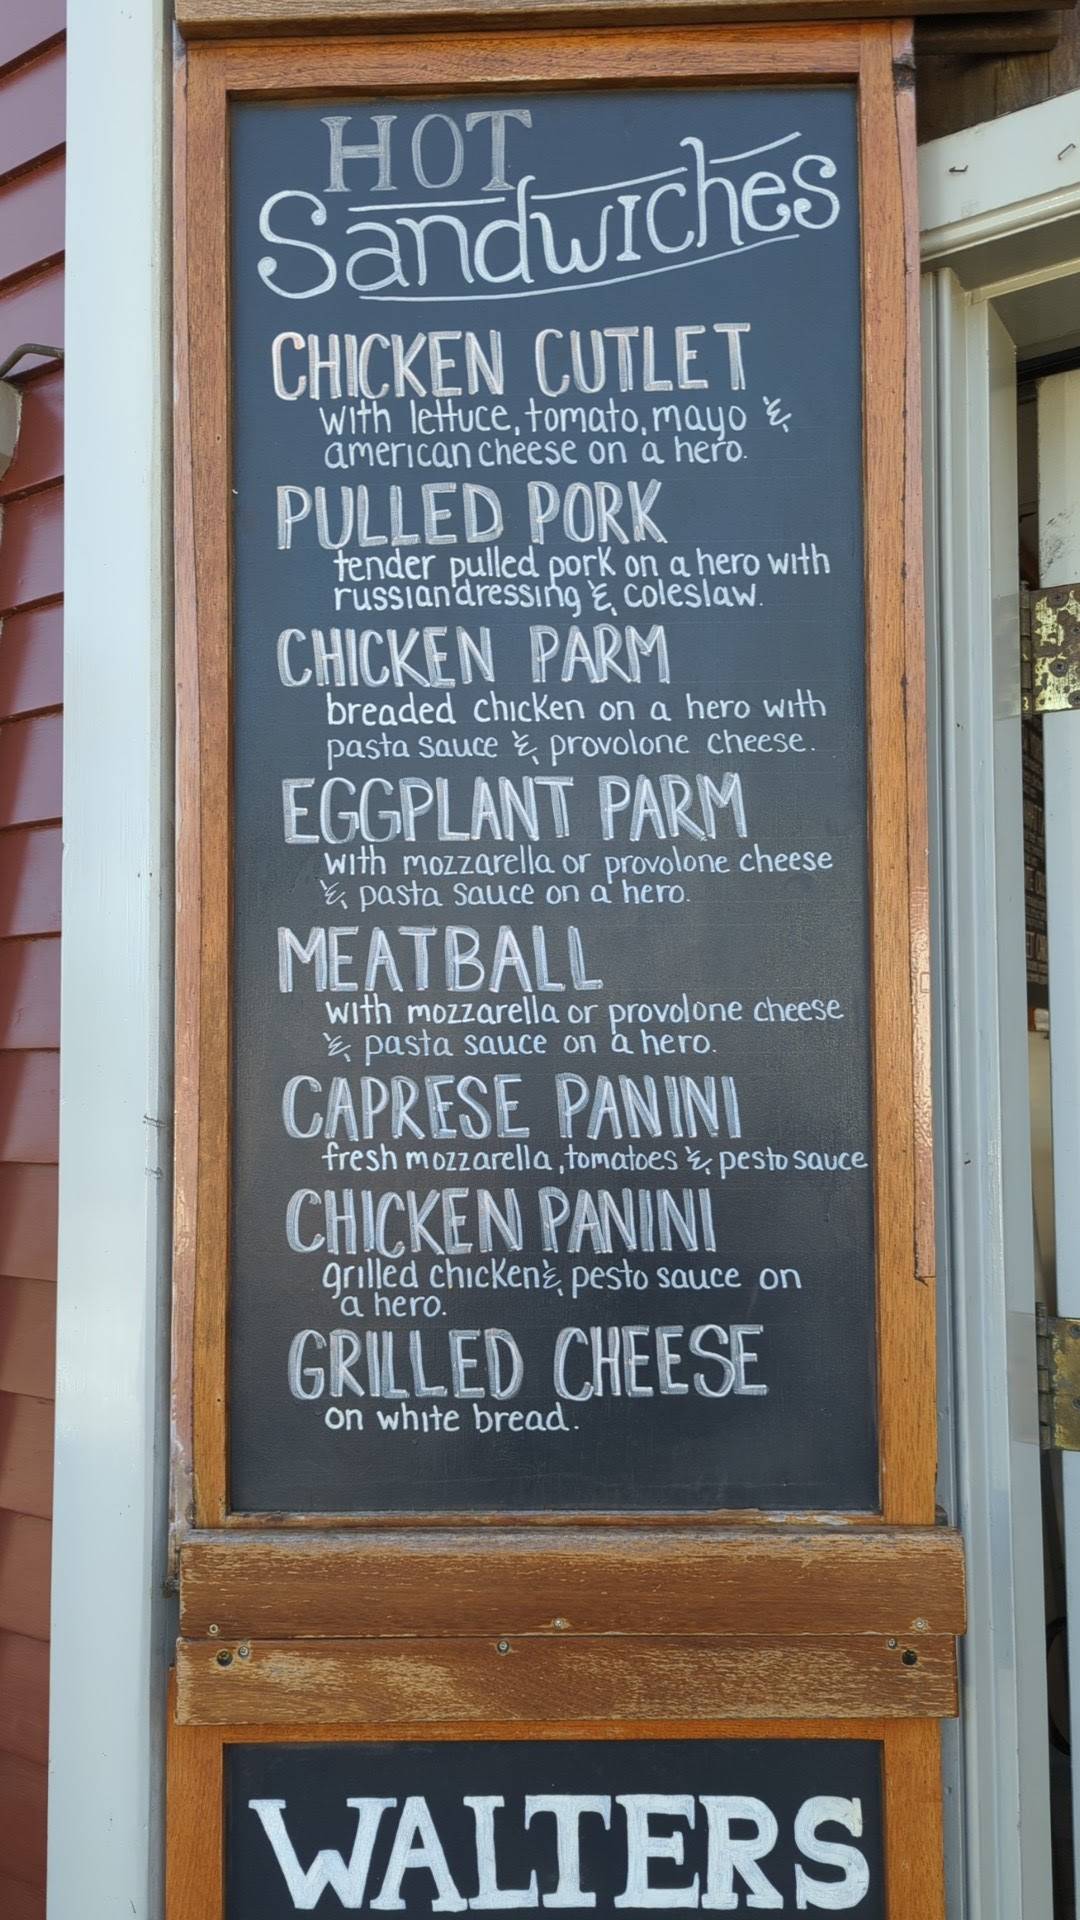 HOT
Sandwiches
CHICKEN CUTLET
with lettuce, tomato, mayo &
american cheese on a hero.
PULLED PORK
tender pulled pork on a hero with
russian dressing & coleslaw.
CHICKEN PARM
breaded chicken on a hero with
pasta sauce & provolone cheese.
EGGPLANT PARM
with mozzarella or provolone cheese
& pasta sauce on a hero.
MEATBALL
with mozzarella or provolone cheese
& pasta sauce on a hero.
CAPRESE PANINI
fresh mozzarella, tomatoes & pesto sauce
CHICKEN PANINI
grilled chicken & pesto sauce on
a hero.
GRILLED CHEESE
on white bread.
WALTERS